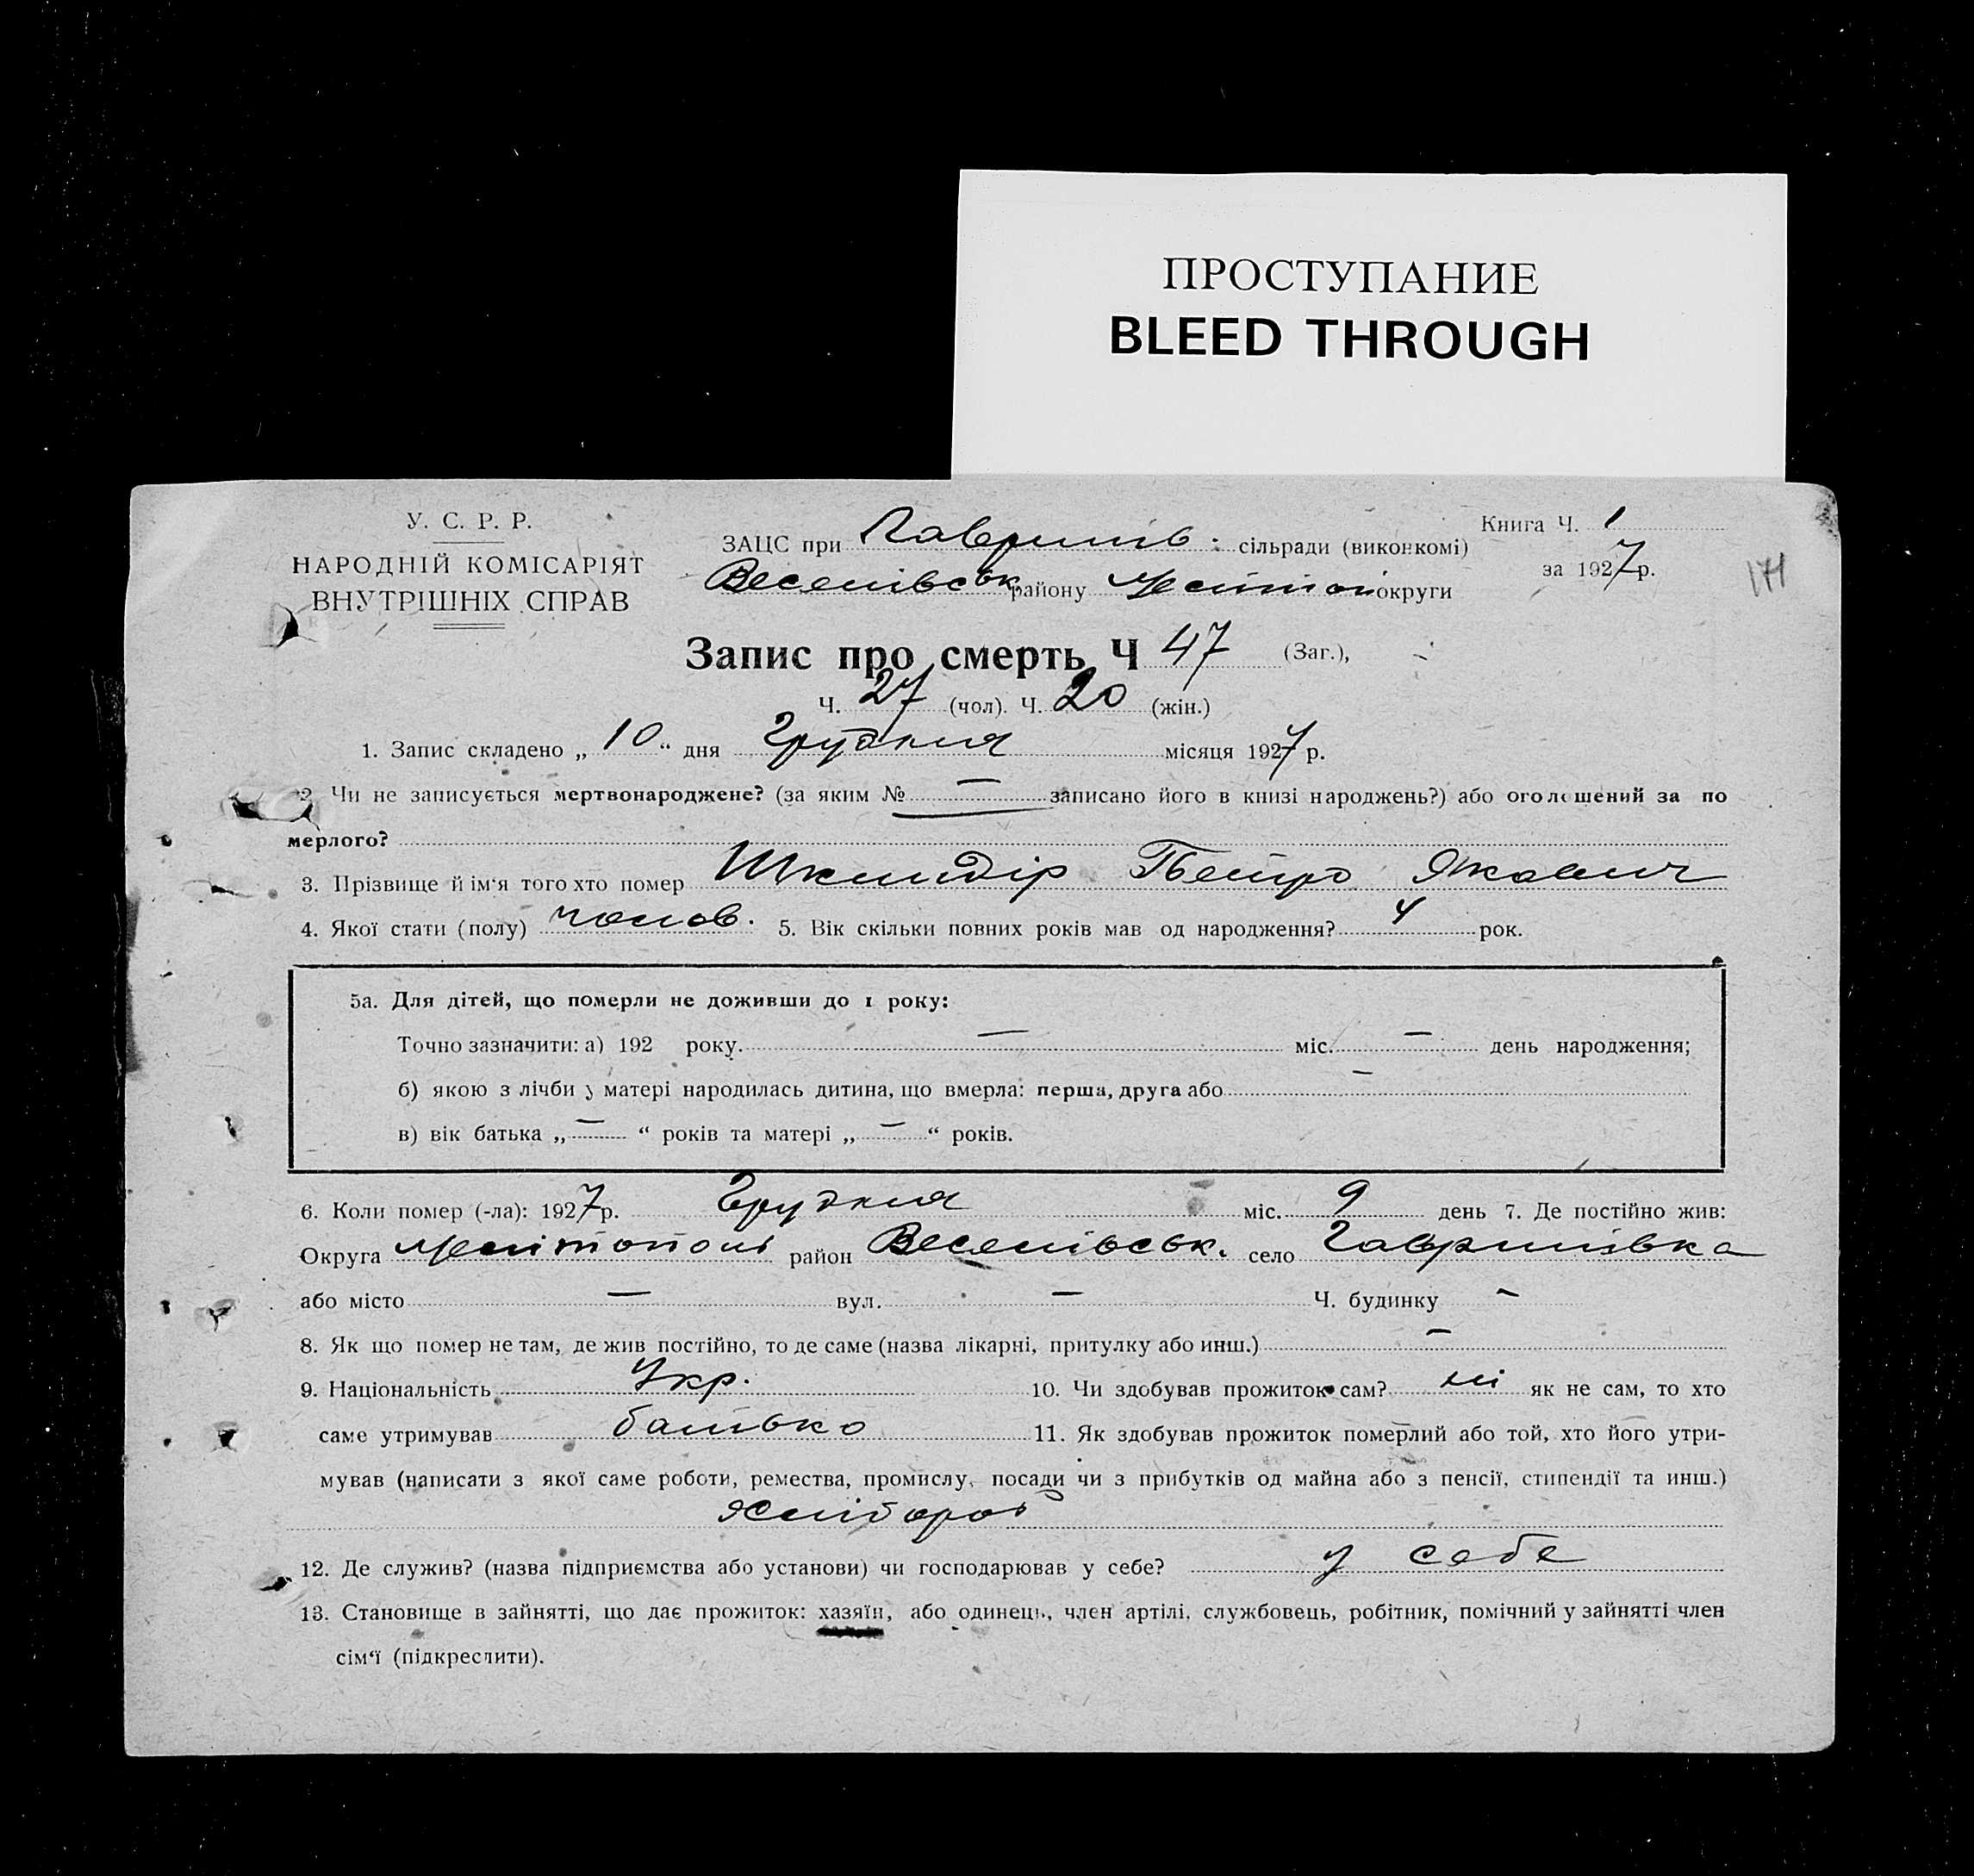 ПРОСТУПАНИЕ
BLEED THROUGH
У. С. Р. Р.
НАРОДНІЙ КОМІСАРІЯТ
ВНУТРІШНІХ СПРАВ
ЗАЦС при Гаврилів. сільради (виконкомі)
Веселівськ району Меліtoп округи
Книга Ч. 1
за 1927 р.
171
Запис про смерть Ч 47 (Заг.),
Ч. 27 (чол). Ч. 20 (жін.)
1. Запис складено „ 10 “ дня Грудня місяця 1927 р.
2. Чи не записується мертвонароджене? (за яким № — записано його в книзі народжень?) або оголошений за по
мерлого?
3. Прізвище й ім‘я того хто помер Шкиндір Петро Якович
4. Якої стати (полу) чолов. 5. Вік скільки повних років мав од народження? 4 рок.
5а. Для дітей, що померли не доживши до 1 року:
Точно зазначити: а) 192 року. — міс. — день народження;
б) якою з лічби у матері народилась дитина, що вмерла: перша, друга або —
в) вік батька „ — “ років та матері „ — “ років.
6. Коли помер (-ла): 1927 р. Грудня міс. 9 день 7. Де постійно жив:
Округа Мелітопол район Веселівськ. село Гаврилівка
або місто — вул. — Ч. будинку —
8. Як що помер не там, де жив постійно, то де саме (назва лікарні, притулку або инш.) —
9. Національність Укр. 10. Чи здобував прожиток сам? ні як не сам, то хто
саме утримував батько 11. Як здобував прожиток померлий або той, хто його утри-
мував (написати з якої саме роботи, ремества, промислу, посади чи з прибутків од майна або з пенсії, стипендії та инш.)
Хлібороб
12. Де служив? (назва підприємства або установи) чи господарював у себе? у себе
13. Становище в зайнятті, що дає прожиток: хазяїн, або одинець, член артілі, службовець, робітник, помічний у зайнятті член
сім‘ї (підкреслити).